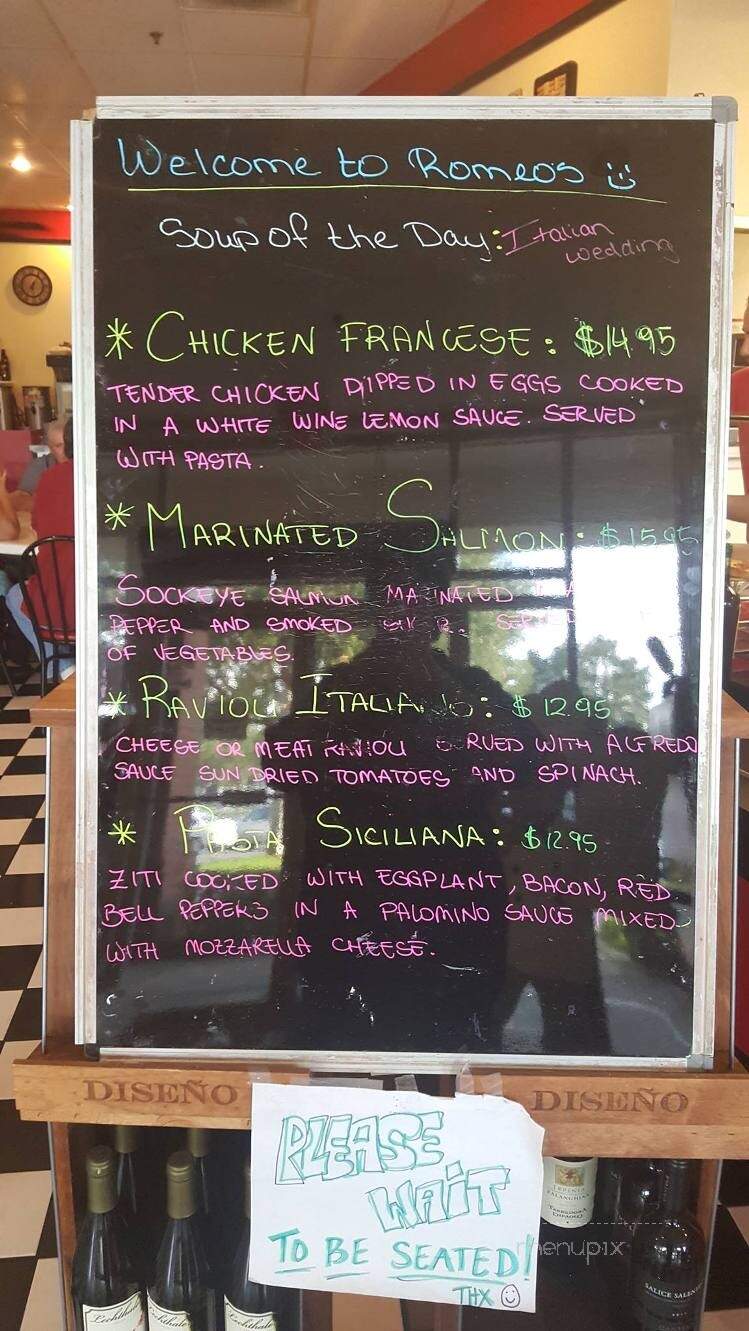 Welcome to Romeo's
Soup of the Day: Italian
wedding
* CHICKEN FRANCESE: $14.95
TENDER CHICKEN DIPPED IN EGGS COOKED
IN A WHITE WINE LEMON SAUCE. SERVED
WITH PASTA.
* MARINATED SALMON: $15.95
SOCKEYE SALMON MARINATED
PEPPER AND SMOKED
OF VEGETABLES.
* RAVIOLI ITALIANO: $12.95
CHEESE OR MEAT RAVIOLI SERVED WITH ALFREDO
SAUCE SUN DRIED TOMATOES AND SPINACH.
* PASTA SICILIANA: $12.95
ZITI COOKED WITH EGGPLANT, BACON, RED
BELL PEPPERS IN A PALOMINO SAUCE MIXED
WITH MOZZARELLA CHEESE.
DISEÑO DISEÑO
PLEASE
WAIT
TO BE SEATED!
THX
menupix
SALICE SALEN